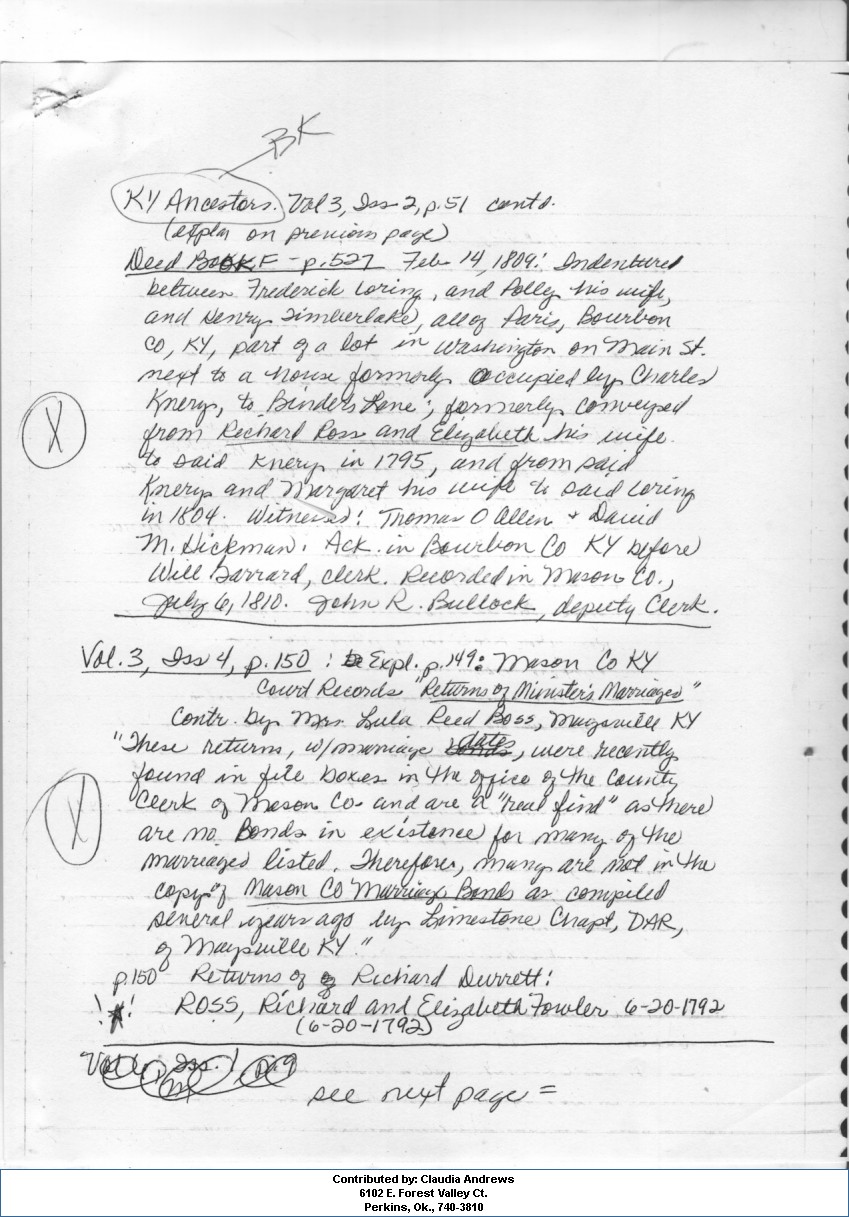 BK
KY Ancestors. Vol 3, Iss 2, p. 51 contd.
(expln on previous page)
Deed Book F - p. 527 Feb 14, 1809: Indentured
between Frederick Loring, and Polly his wife,
and Henry Timberlake, all of Paris, Bourbon
Co, KY, part of a lot in Washington on Main St.
next to a house formerly occupied by Charles
Knery, to Binders Lane; formerly conveyed
from Richard Ross and Elizabeth his wife
to said Knery in 1795, and from said
Knery and Margaret his wife to said Loring
in 1804. Witnessed: Thomas O Allen & David
M. Hickman. Ack. in Bourbon Co KY before
Will Garrard, clerk. Recorded in Mason Co.,
July 6, 1810. John R. Bullock, deputy Clerk.
X
Vol. 3, Iss 4, p. 150 : Expl. p. 149: Mason Co KY
Court Records "Returns of Minister's Marriages"
Contr. by Mrs. Lula Reed Boss, Maysville KY
"These returns, w/marriage dates, were recently
found in file boxes in the office of the County
Clerk of Mason Co. and are a "real find" as there
are no Bonds in existence for many of the
marriages listed. Therefore, many are not in the
copy of Mason Co Marriage Bonds as compiled
several years ago by Limestone Chapt, DAR,
of Maysville KY."
X
p. 150 Returns of Richard Durrett:
! * ! ROSS, Richard and Elizabeth Fowler 6-20-1792
(6-20-1792)
Iss. 1, p. 9
see next page =
Contributed by: Claudia Andrews
6102 E. Forest Valley Ct.
Perkins, Ok., 740-3810